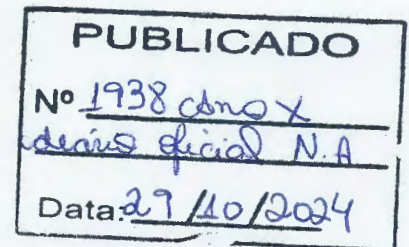 PUBLICADO
Nº 1938 Ano X
diário oficial N.A
Data: 29/10/2024